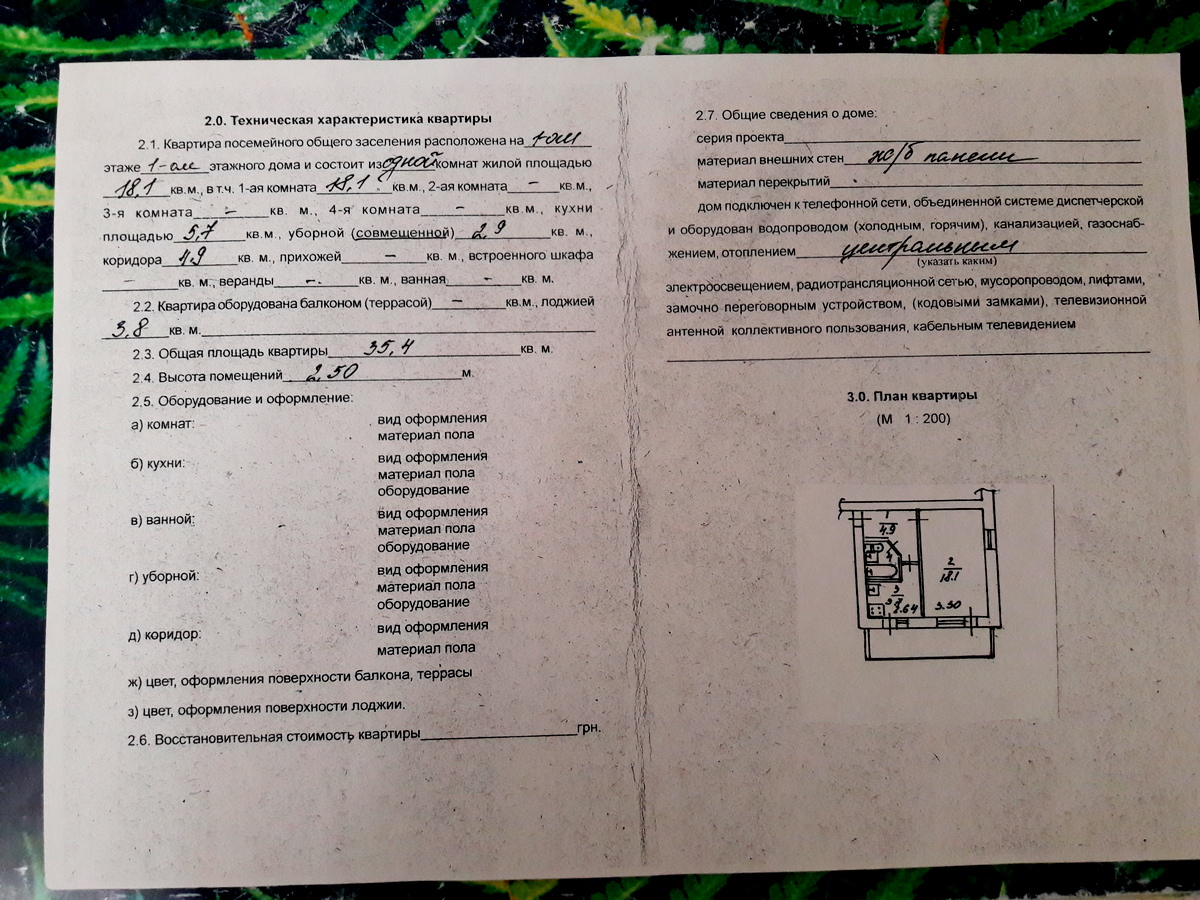 2.0. Техническая характеристика квартиры
2.1. Квартира посемейного общего заселения расположена на 1-ом
этаже 1-ом этажного дома и состоит из одной комнат жилой площадью
18,1 кв.м., в т.ч. 1-ая комната 18,1 кв.м., 2-ая комната – кв.м.,
3-я комната – кв. м., 4-я комната – кв.м., кухни
площадью 5,7 кв.м., уборной (совмещенной) 2,9 кв. м.,
коридора 4,9 кв. м., прихожей – кв. м., встроенного шкафа
– кв. м., веранды – кв. м., ванная – кв. м.
2.2. Квартира оборудована балконом (террасой) – кв.м., лоджией
3,8 кв. м.
2.3. Общая площадь квартиры 35,4 кв. м.
2.4. Высота помещений 2,50 м.
2.5. Оборудование и оформление:
а) комнат: вид оформления
материал пола
б) кухни: вид оформления
материал пола
оборудование
в) ванной: вид оформления
материал пола
оборудование
г) уборной: вид оформления
материал пола
оборудование
д) коридор: вид оформления
материал пола
ж) цвет, оформления поверхности балкона, террасы
з) цвет, оформления поверхности лоджии.
2.6. Восстановительная стоимость квартиры грн.
2.7. Общие сведения о доме:
серия проекта
материал внешних стен ж/б панели
материал перекрытий
дом подключен к телефонной сети, объединенной системе диспетчерской
и оборудован водопроводом (холодным, горячим), канализацией, газоснаб-
жением, отоплением центральным
(указать каким)
электроосвещением, радиотрансляционной сетью, мусоропроводом, лифтами,
замочно переговорным устройством, (кодовыми замками), телевизионной
антенной коллективного пользования, кабельным телевидением
3.0. План квартиры
(М 1 : 200)
1
4.9
4
2
18.1
3
2.64
3.30